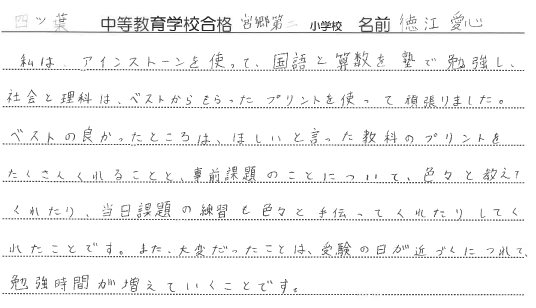 四ツ葉 中等教育学校合格 宮郷第二 小学校 名前 徳江愛心
私は、アインストーンを使って、国語と算数を塾で勉強し、
社会と理科は、ベストからもらったプリントを使って頑張りました。
ベストの良かったところは、ほしいと言った教科のプリントを
たくさんくれることと、事前課題のことについて、色々と教えて
くれたり、当日課題の練習も色々と手伝ってくれたりしてく
れたことです。また、大変だったことは、受験の日が近づくにつれて、
勉強時間が増えていくことです。